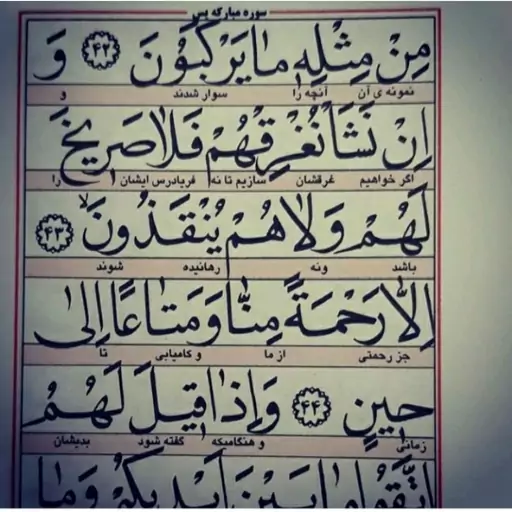 سوره مبارکه یس
مِنْ مِثْلِهِ مٰا یَرْکَبُونَ ﴿۴۲﴾ وَ
نمونه ی آن آنچه را سوار شدند و
اِنْ نَشَأْ نُغْرِقْهُمْ فَلاٰ صَرِیخَ
اگر خواهیم غرقشان سازیم تا نه فریادرس ایشان را
لَهُمْ وَلاٰ هُمْ یُنْقَذُونَ ﴿۴۳﴾
باشد ونه رهانیده شوند
اِلاّٰ رَحْمَةً مِنّٰا وَ مَتٰاعًا اِلیٰ
جز رحمتی از ما و کامیابی تا
حِینٍ ﴿۴۴﴾ وَ اِذٰا قِیلَ لَهُمُ
زمانی و هنگامیکه گفته شود بدیشان
اتَّقُوا مٰا بَیْنَ اَیْدِیکُمْ وَمٰا